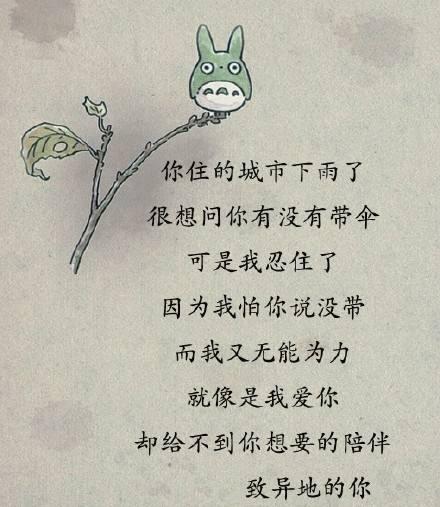 你住的城市下雨了
很想问你有没有带伞
可是我忍住了
因为我怕你说没带
而我又无能为力
就像是我爱你
却给不到你想要的陪伴
致异地的你